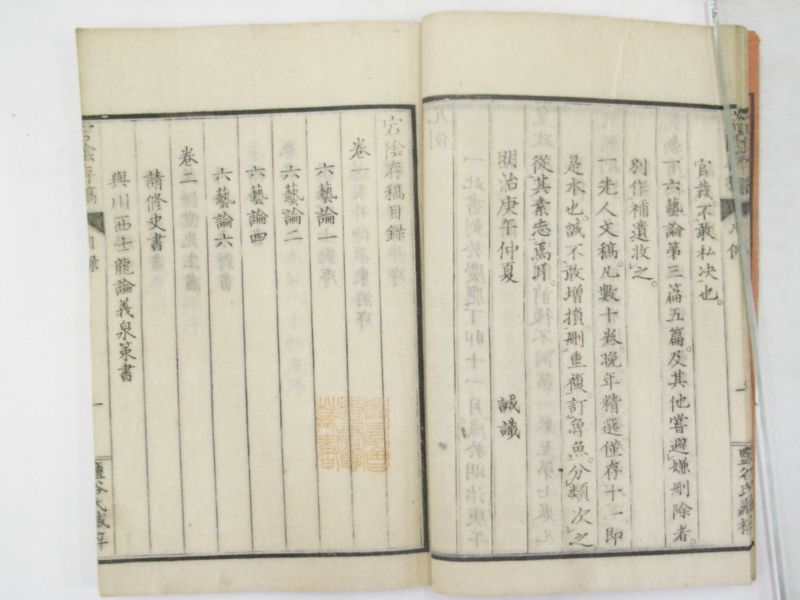 官哉。不敢私决也。
一六藝論第三篇五篇。及其他嘗避嫌刪除者。
別作補遺收之。
一先人文稿。凡數十卷。晚年精選。僅存十一。即
是本也。誠不敢增損。刪重複。訂魯魚。分類次之。
從其素志焉耳。
明治庚午仲夏
誠識
凡例
宕陰存稿目錄
卷一
六藝論一
六藝論二
六藝論四
六藝論六
卷二
請修史書
與川西士龍論義泉策書
宕陰存稿
目錄
一